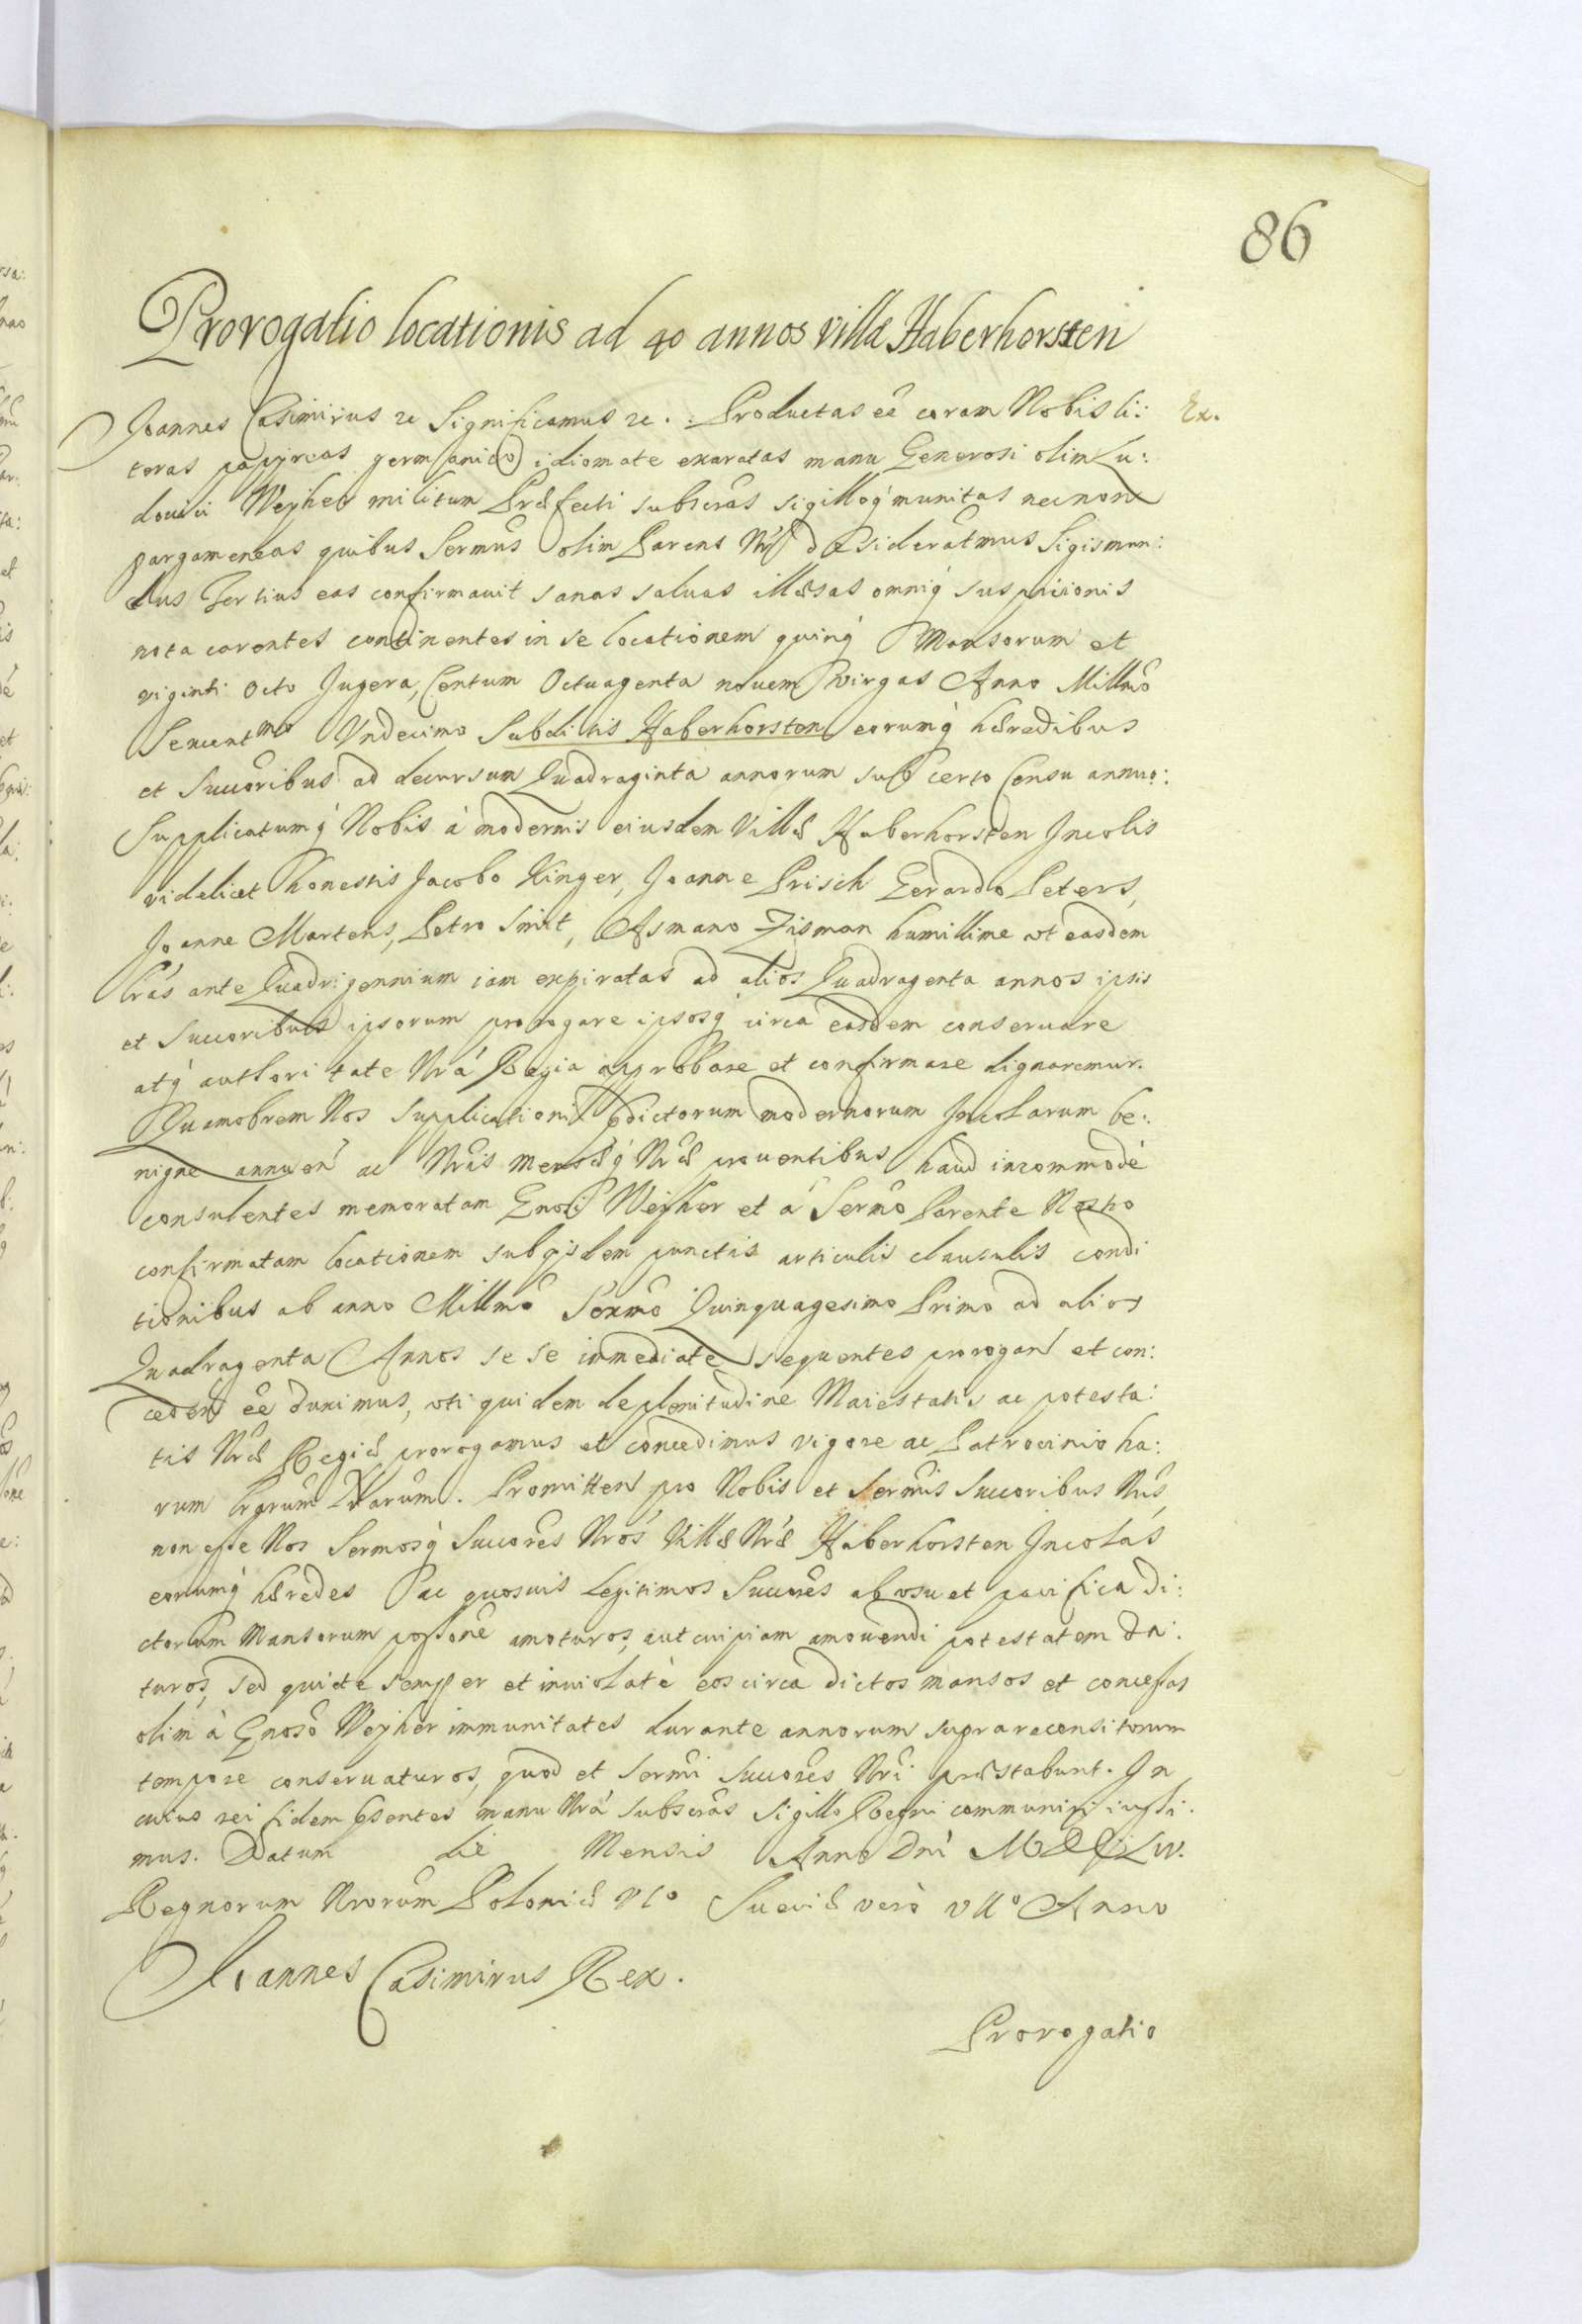 86
Prorogatio locationis ad 40 annos villæ Haberhorsten
Joannes Casimirus etc Significamus etc. : Productas eê coram Nobis li: Ex.
teras papyreas germanico idiomate exaratas manu Generosi olim Lu:
dovici Weyher militum Præfecti subscras sigilloq́ munitas necnon
pargameneas quibus Sermus olim Parens Nr desideratmus Sigismun:
dus Tertius eas confirmavit sanas salvas illæsas omniq́ suspicionis
nota carentes continentes in se locationem quinq́ Mansorum et
viginti octo Jugera, Centum Octuagenta novem virgas Anno Millmo
Sexcentmo Undecimo Subditis Haberhorsten eorumq́ hæredibus
et Succoribus ad decursum Quadraginta annorum sub certo Censu annuo:
Supplicatumq́ Nobis à modernis eiusdem Villæ Haberhorsten Incolis
videlicet honestis Jacobo Kinger, Joanne Prisch Gerardo Peters,
Joanne Martens, Petro Smit, Asmano Zisman humillime ut easdem
lrás ante Quadrigennium iam expiratas ad alios Quadragenta annos ipsis
et Succoribus ipsorum prorogare ipsosq́ circa easdem conservare
atq́ authoritate Nrá Regia approbare et confirmare dignaremur.
Quamobrem Nos Supplicationi pdictorum modernorum Incolarum be:
nigne annuen ac Nris Mensæq́ Nræ proventibus haud incommodè
consulentes memoratam Gnosi Weyher et á Sermo Parente Nostro
confirmatam locationem sub ijsdem punctis articulis clausulis condi
tionibus ab anno Millmo Sexmo Quinquagesimo Primo ad alios
Quadragenta Annos se se immediate sequentes prorogan et con:
ceden eê duximus, uti quidem de plenitudine Maiestatis ac potesta:
tis Nræ Regiæ prorogamus et concedimus vigore ac Patrocinio ha:
rum lrarum Nrarum. Promitten pro Nobis et Sermis Succoribus Nris,
non esse Nos Sermosq́ Succores Nros Villæ Nræ Haberhorsten Incolas
eorumq́ hæredes ac quosvis legitimos Succores ab usu et pacifica di:
ctorum Mansorum possone amoturos, aut cuipiam amovendi potestatem da:
turos, sed quiete semper et inviolatè eos circa dictos mansos et concessas
olim à Gnoso Weyher immunitates durante annorum supra recensitorum
tempore conservaturos, quod et Sermi Succores Nri præstabunt. In
cuius rei fidem psentes manu Nrá subscras Sigillo Regni communiri iussi:
mus. Datum die Mensis Anno Dni MDCLIV.
Regnorum Nrorum Poloniæ VIo Sueciæ verò VIIo Anno
Joannes Casimirus Rex.
Prorogatio